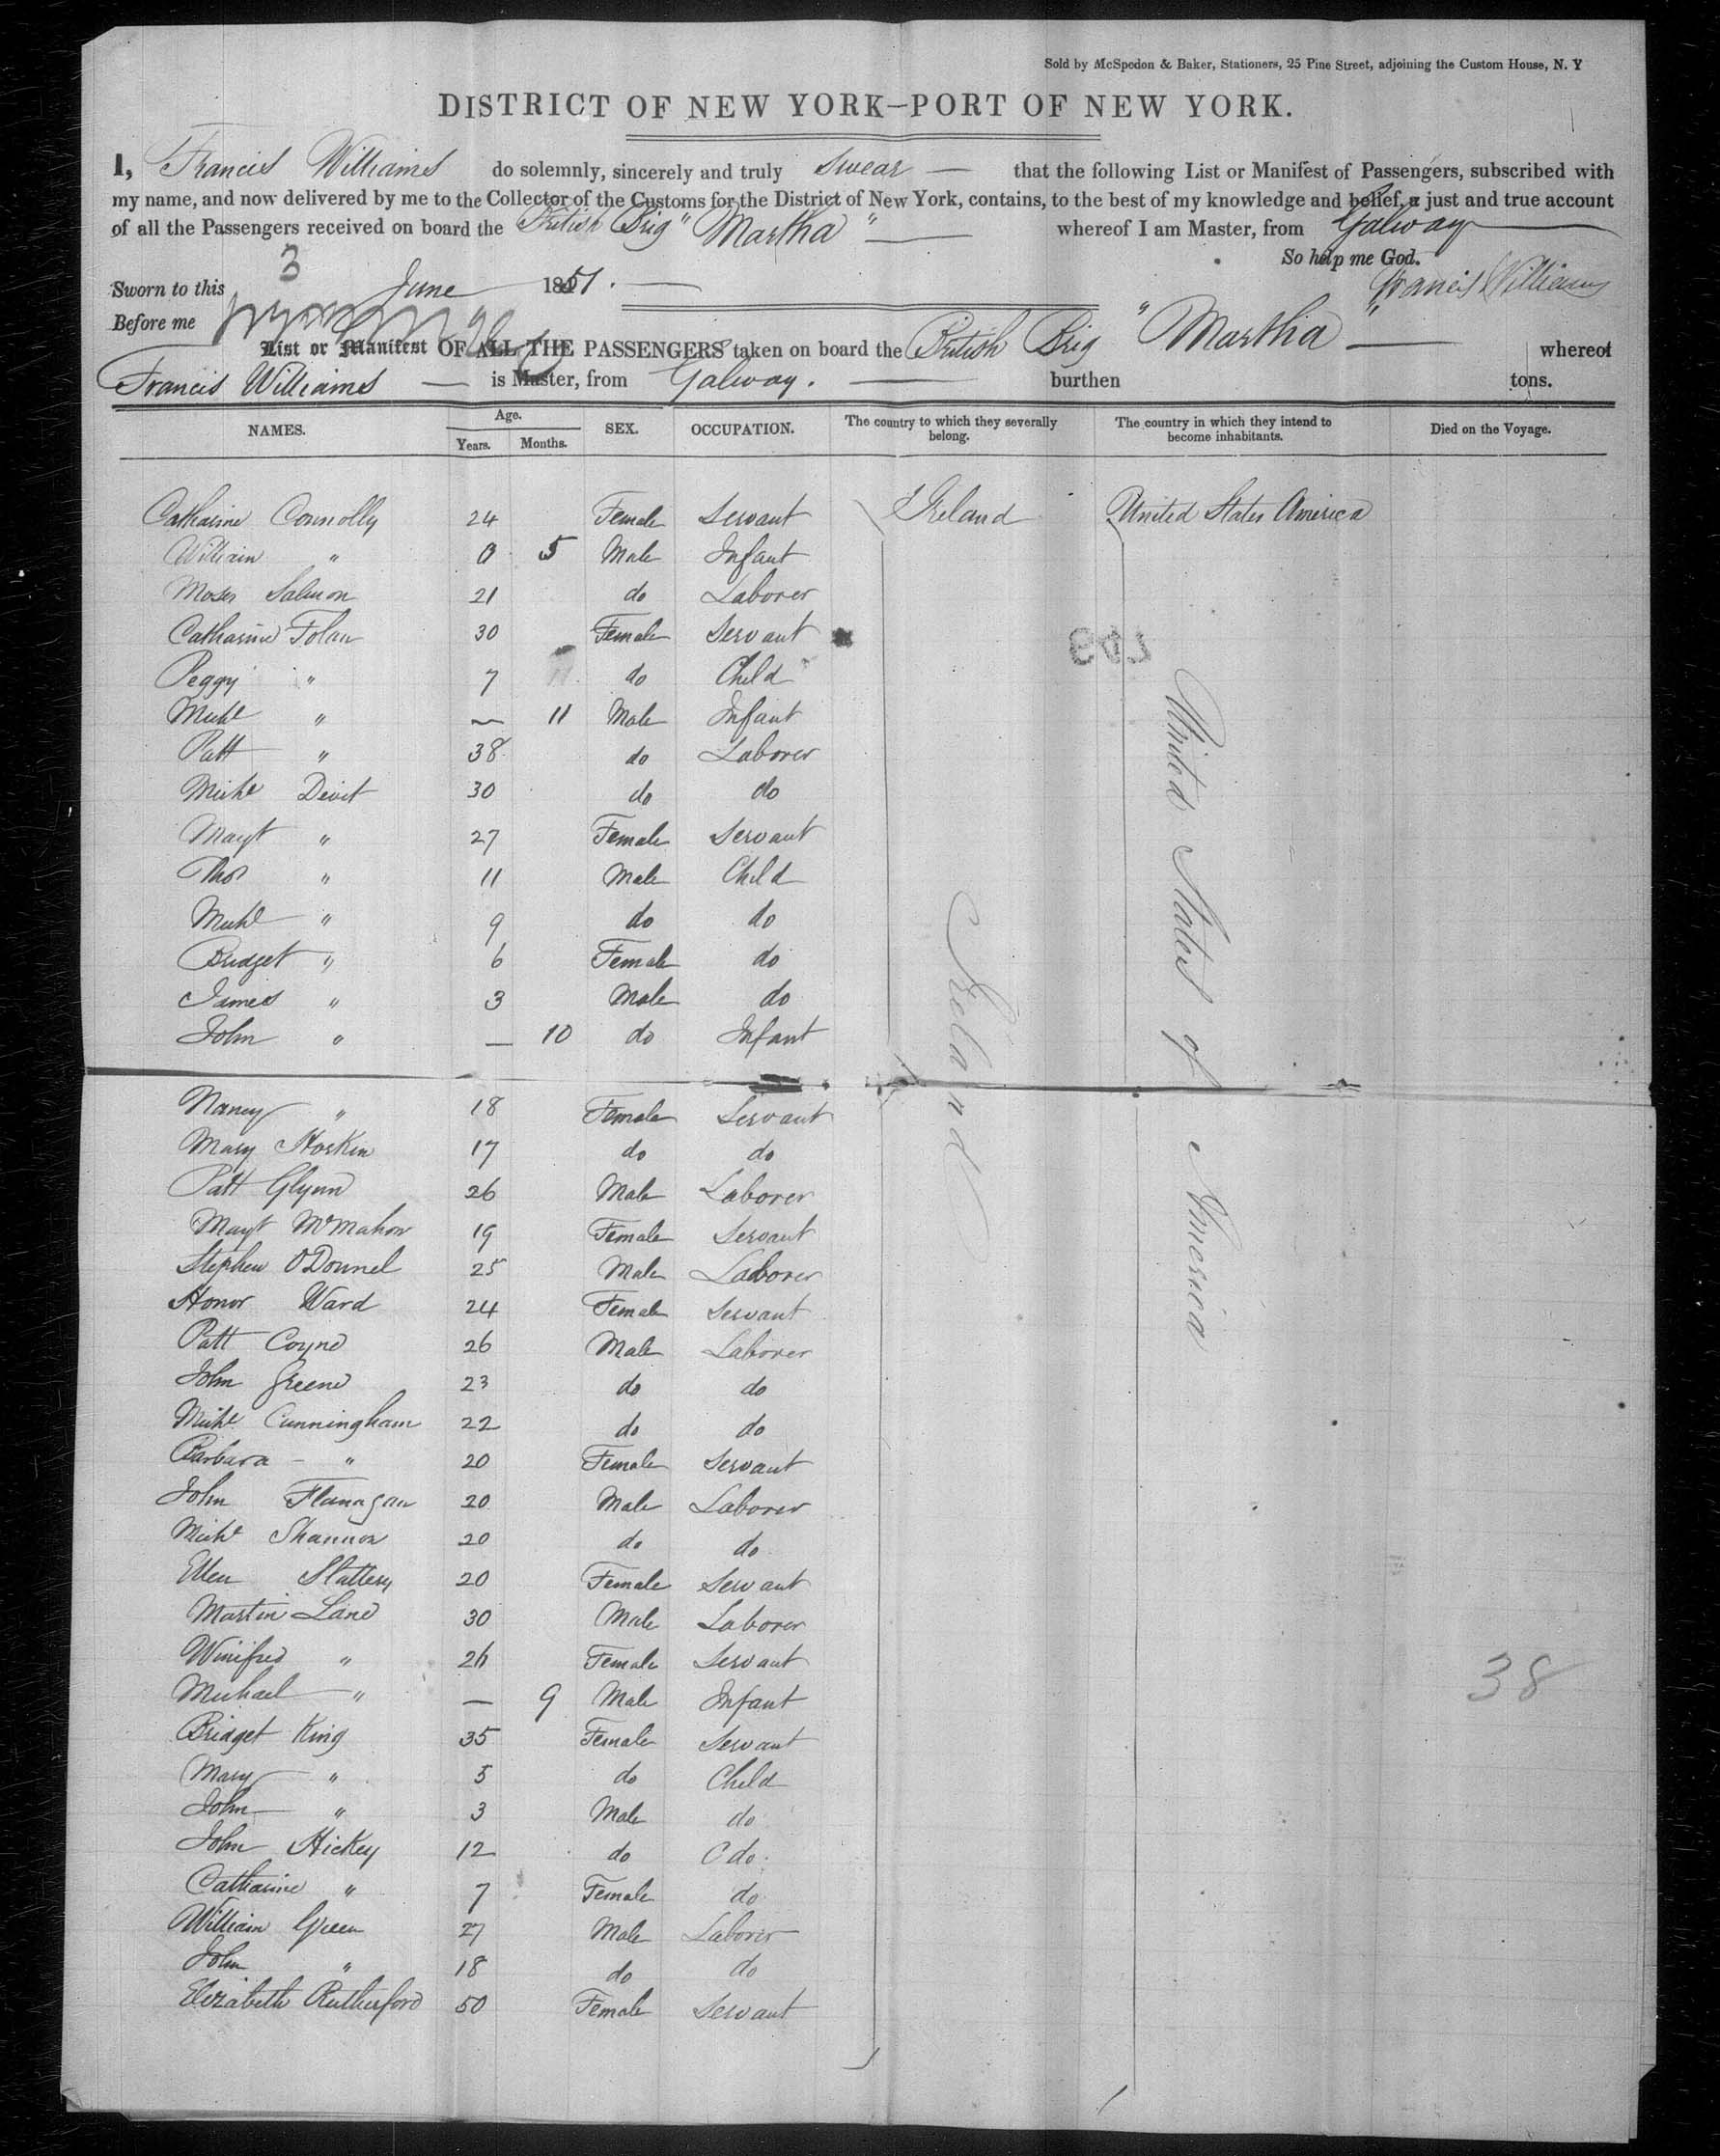 Sold by McSpedon & Baker, Stationers, 25 Pine Street, adjoining the Custom House, N. Y
DISTRICT OF NEW YORK–PORT OF NEW YORK.
I, Francis Williams do solemnly, sincerely and truly swear — that the following List or Manifest of Passengers, subscribed with
my name, and now delivered by me to the Collector of the Customs for the District of New York, contains, to the best of my knowledge and belief, a just and true account
of all the Passengers received on board the British Brig "Martha" — whereof I am Master, from Galway —
So help me God.
Sworn to this 3 June 1851. — Francis Williams
Before me
List or Manifest OF ALL THE PASSENGERS taken on board the British Brig "Martha" — whereof
Francis Williams — is Master, from Galway. — burthen tons.
NAMES. Age. Years. Months. SEX. OCCUPATION. The country to which they severally belong. The country in which they intend to become inhabitants. Died on the Voyage.
Catharine Connolly 24 Female Servant Ireland United States America
William " 0 5 Male Infant
Moses Salmon 21 do Laborer
Catharine Folan 30 Female Servant
Peggy " 7 do Child
Michl " — 11 Male Infant
Patt " 38 do Laborer
Michl Devit 30 do do
Margt " 27 Female Servant
Thos " 11 Male Child
Michl " 9 do do
Bridget " 6 Female do
James " 3 Male do
John " — 10 do Infant
Nancy " 18 Female Servant
Mary Hoskin 17 do do
Patt Glynn 26 Male Laborer
Margt McMahon 19 Female Servant
Stephen ODonnel 25 Male Laborer
Honor Ward 24 Female Servant
Patt Coyne 26 Male Laborer
John Greene 23 do do
Michl Cunningham 22 do do
Barbara - " 20 Female Servant
John Flanagan 20 Male Laborer
Michl Shannon 20 do do
Ellen Slattery 20 Female Servant
Martin Lane 30 Male Laborer
Winifred " 26 Female Servant
Michael " — 9 Male Infant
Bridget King 35 Female Servant
Mary " 5 do Child
John " 3 Male do
John Hickey 12 do do
Catharine " 7 Female do
William Green 27 Male Laborer
John " 18 do do
Elizabeth Rutherford 50 Female Servant
Ireland
United States of America
38